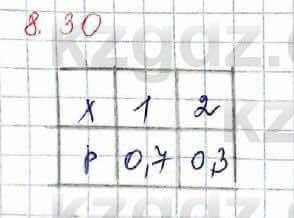 8. 30
X 1 2
P 0,7 0,3